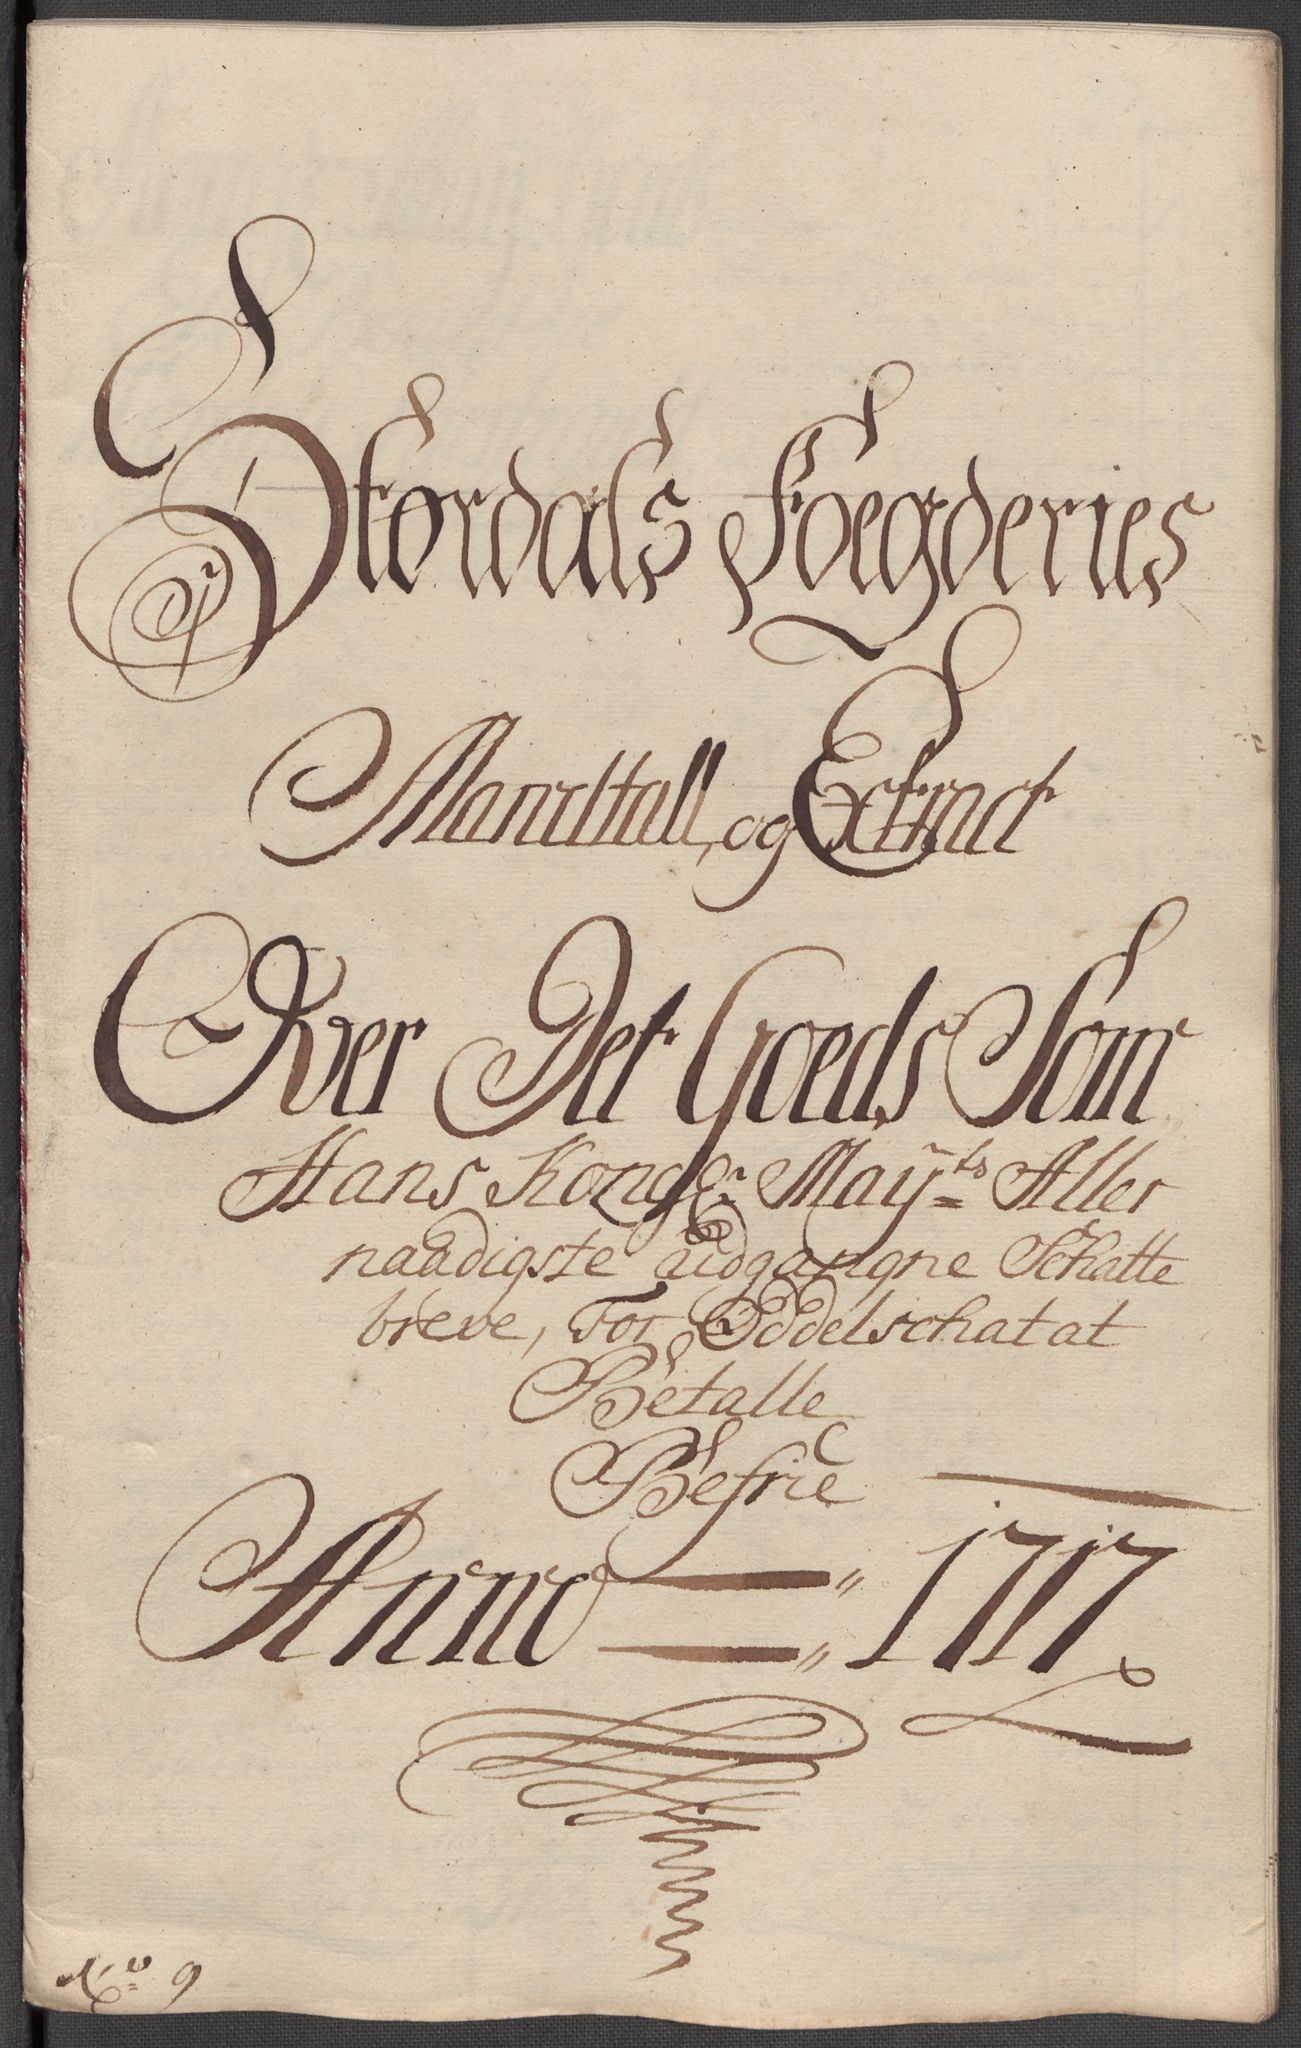 Stordals Foegderies
Mandtall, og Extract
Over Det Goeds Som
Hans Kongl: May:ts Aller
naadigste uidgangne Schatte
breve, For Oddelschat at
Betalle
Befrie
Anno 1717
No 9